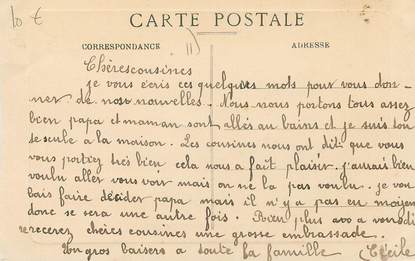 10 €
CARTE POSTALE
CORRESPONDANCE
ADRESSE
Chères cousines
je vous ecris ces quelques mots pour vous don-
ner de nos nouvelles. Nous nous portons tous assez
bien papa et maman sont allés au bains et je suis tou
te seule a la maison. Les cousines nous ont dit que vous
vous portiez très bien cela nous a fait plaisir. j'aurais bien
voulu aller vous voir mais on ne la pas voulu. je vou
lais faire décider papa mais il n'y a pas eu moyen
donc se sera une autre fois. Rien plus a vous dire
recevez chères cousines une grosse embrassade.
Un gros baisers a toute la famille
Cécile